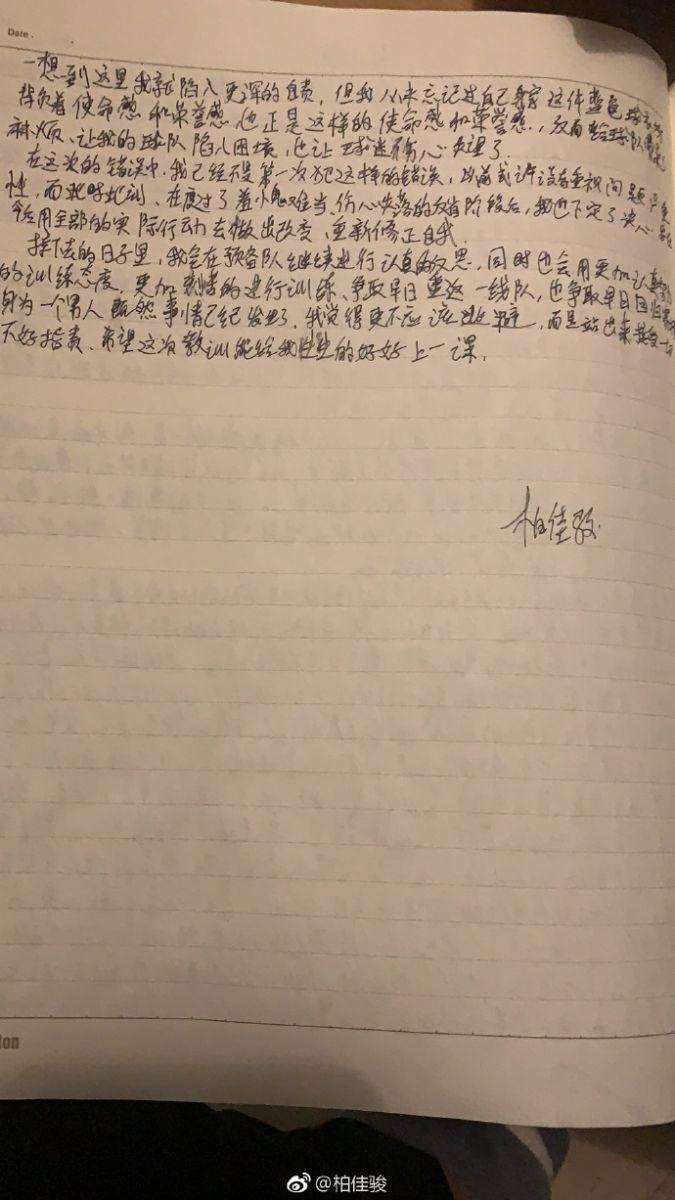 Date .
一想到这里我就陷入更深的自责，但我从未忘记过自己身穿这件蓝色球衣
背负着使命感和荣誉感，也正是这样的使命感和荣誉感，反而给球队
麻烦、让我的球队陷入困境，也让球迷伤心失望了．
在这次的错误中．我已经不是第一次犯这样的错误，以前或许没有重视问题严重
性，而此时此刻、在度过了羞愧难当、伤心失落的反省阶段后，我也下定了决心
今后用全部的实际行动去做出改变、重新修正自我．
接下去的日子里，我会在预备队继续进行认真的反思．同时也会用更加认真
的训练态度．更加的进行训练、争取早日重返一线队，也争取早日回归
身为一个男人既然事情已经发生了．我觉得更不应该逃避，而是站出来接受一
不好指责．希望这次教训能给我生生的好好上一课．
柏佳骏
ton
@柏佳骏